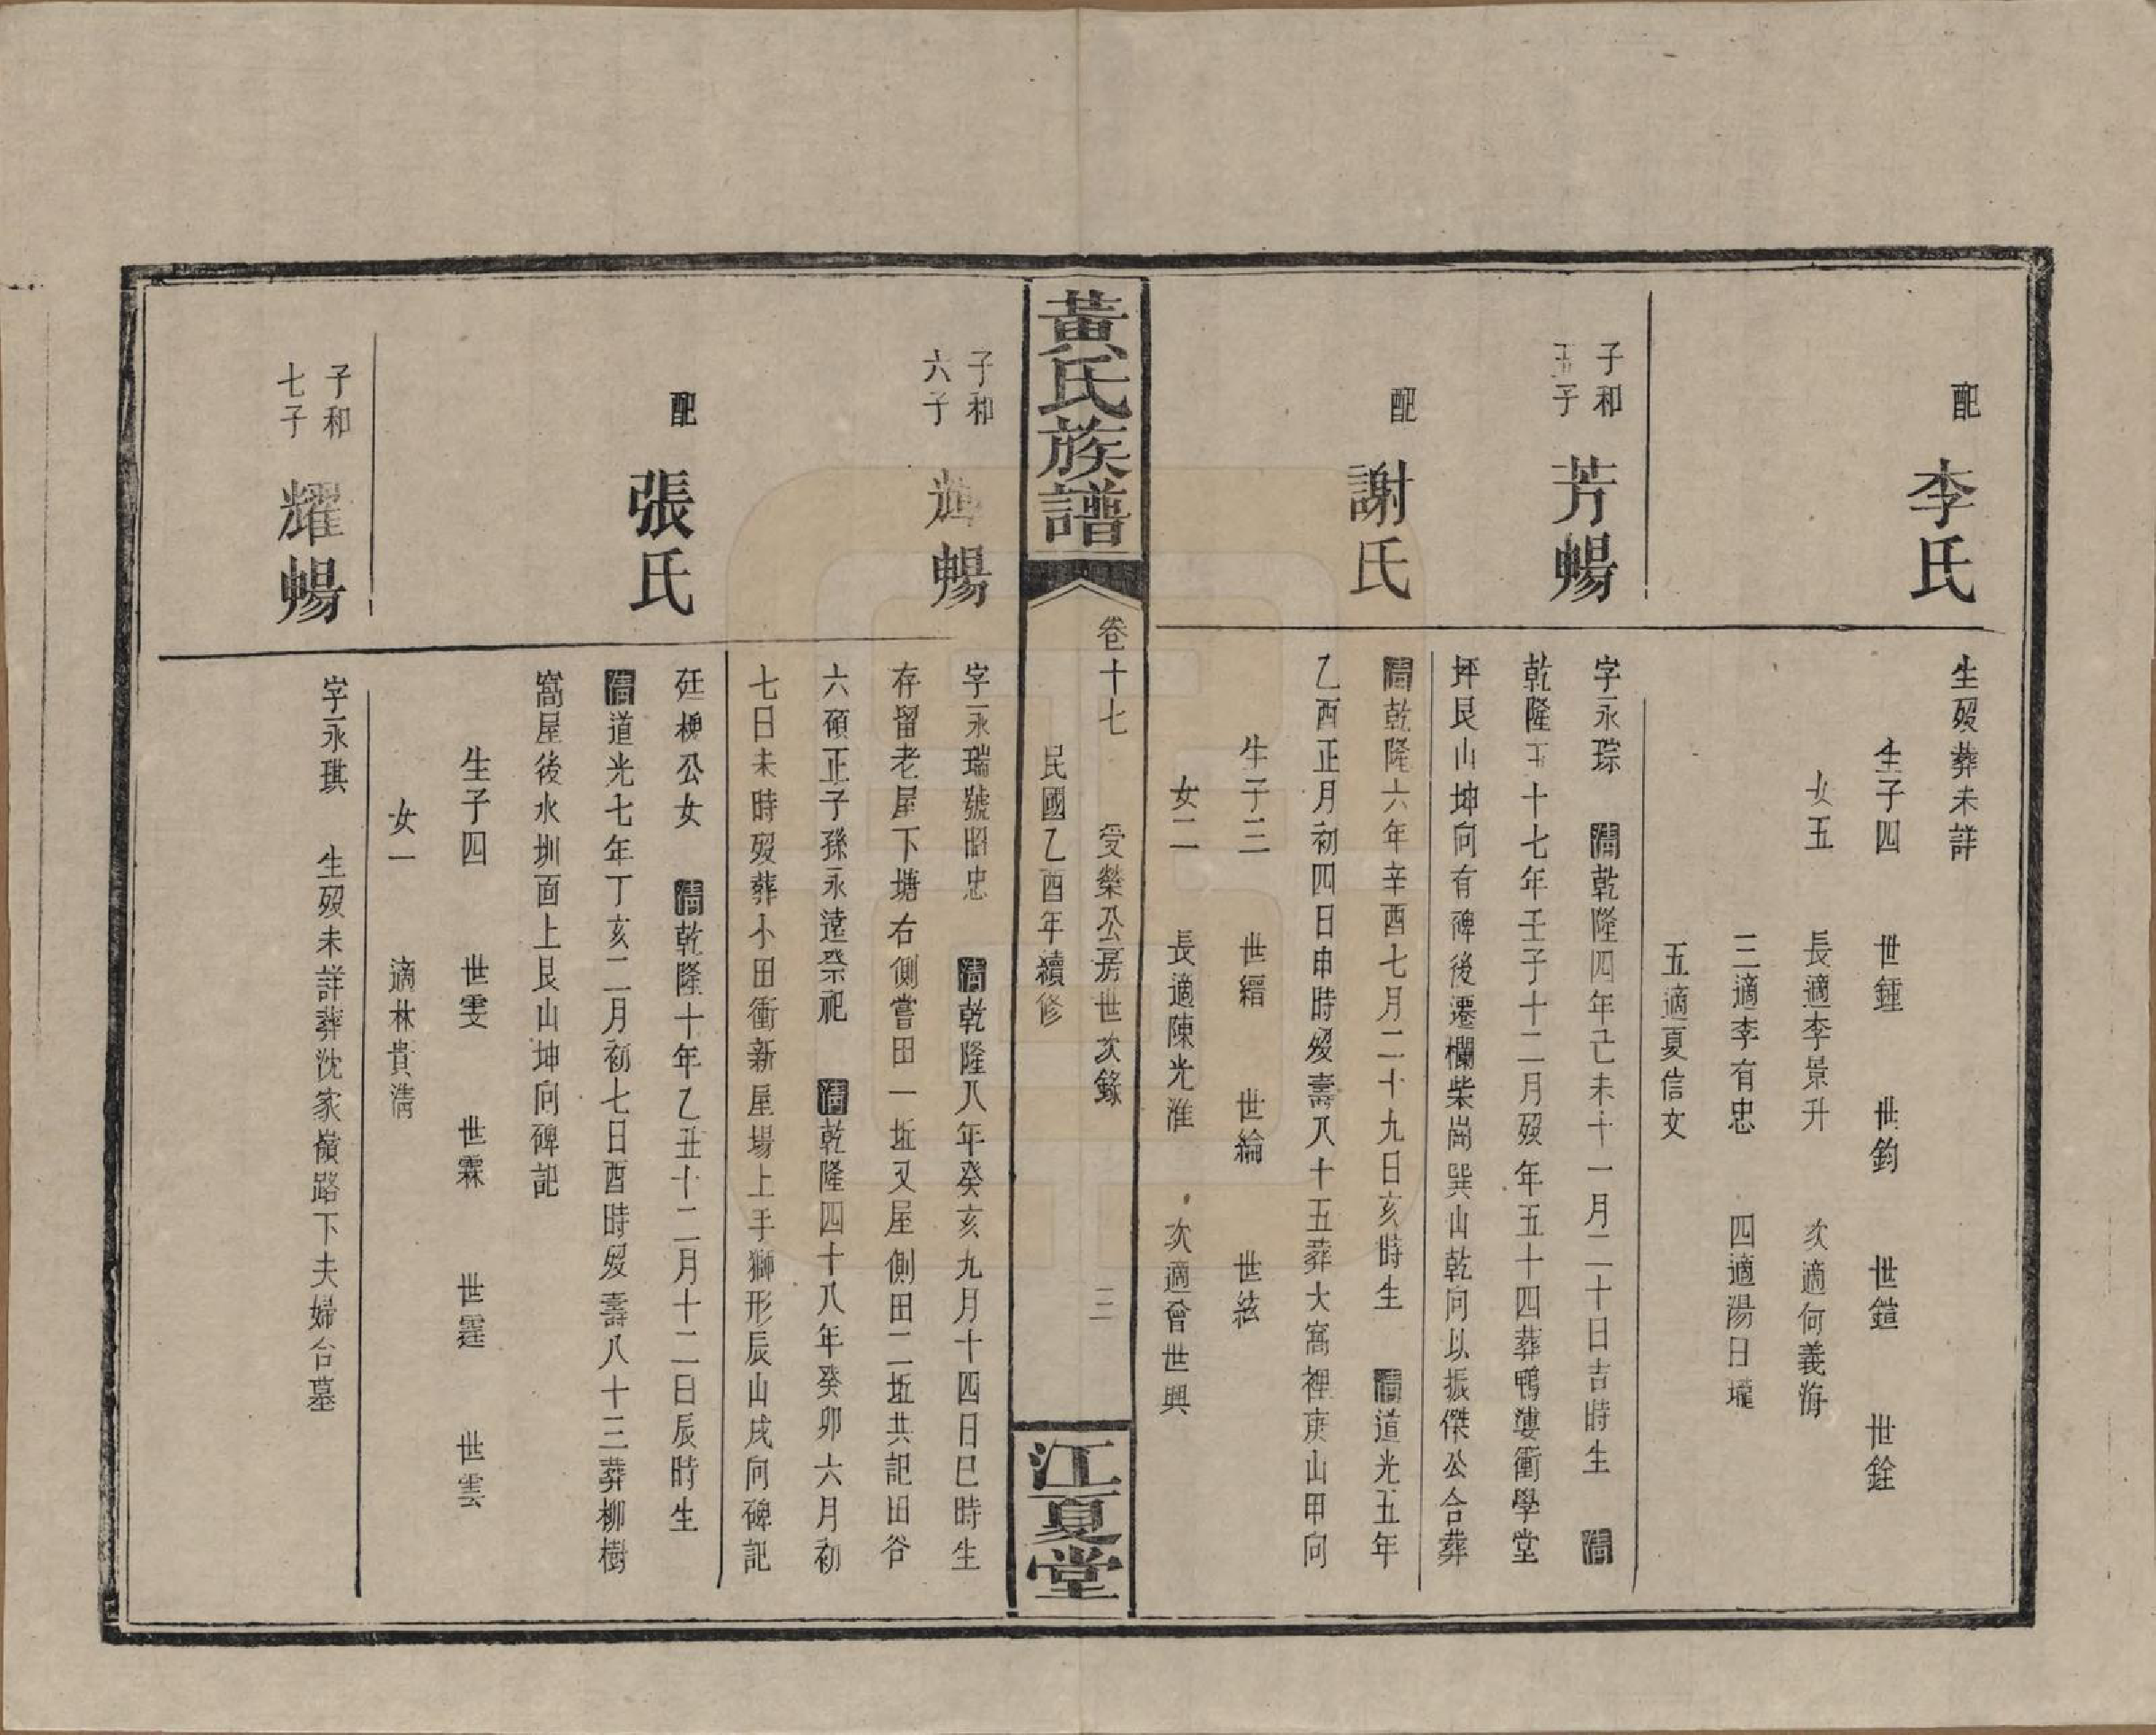 配 李氏
生歿葬未詳
生子四 世鍾 世鈞 世鎧 世銓
女五 長適李景升 次適何義海
三適李有忠 四適湯日瓏
五適夏信文
子和
五子
芳暢
字永琮 清乾隆四年己未十一月二十日吉時生 清
乾隆五十七年壬子十二月歿年五十四葬鴨漊衝學堂
坪艮山坤向有碑後遷欄柴崗巽山乾向以振傑公合葬
配 謝氏
清乾隆六年辛酉七月二十九日亥時生 清道光五年
乙酉正月初四日申時歿壽八十五葬大窩裡庚山甲向
生子三 世縉 世綸 世絃
女二 長適陳光淮 次適會世興
黃氏族譜
卷十七 受榮公房世次錄 三
民國乙酉年續修
江夏堂
子和
六子
輝暢
字永瑞號昭忠 清乾隆八年癸亥九月十四日巳時生
存留老屋下塘右側嘗田一坵又屋側田二坵共記田谷
六碩正子孫永遠祭祀 清乾隆四十八年癸卯六月初
七日未時歿葬小田衝新屋場上手獅形辰山戌向碑記
配 張氏
廷梗公女 清乾隆十年乙丑十二月十二日辰時生
清道光七年丁亥二月初七日酉時歿壽八十三葬柳樹
窩屋後水圳面上艮山坤向碑記
生子四 世雯 世霖 世霆 世雲
女一 適林貴清
子和
七子
耀暢
字永琪 生歿未詳葬沈家嶺路下夫婦合墓